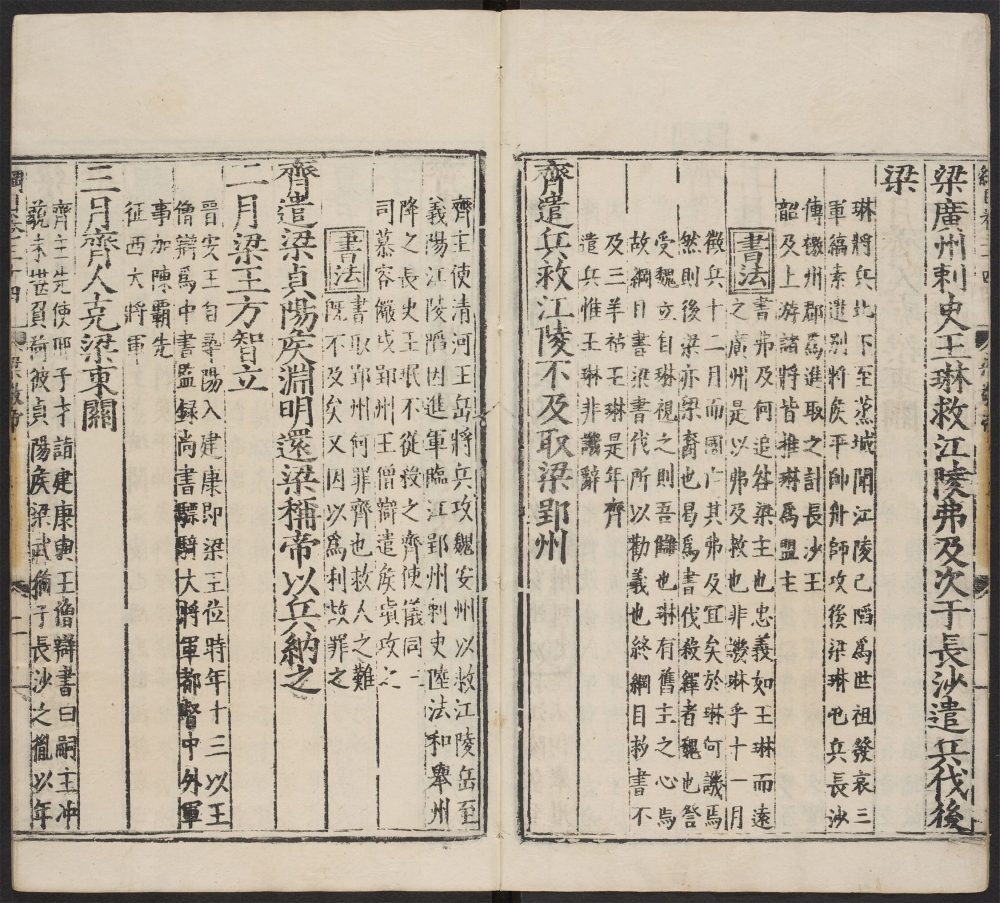 梁廣州刺史王琳救江陵弗及次于長沙遣兵伐後
梁
琳將兵北下至蒸城聞江陵已陷爲世祖發哀三
軍縞素遣別將侯平帥舟師攻後梁琳屯兵長沙
傳檄州郡爲進取之計長沙王
韶及上游諸將皆推琳爲盟主
書法
書弗及何追咎梁主也忠義如王琳而遠
之廣州是以弗及救也非譏琳乎十一月
徵兵十二月而國亡其弗及宜矣於琳何譏焉
然則後梁亦梁裔也曷爲書伐殺繹者魏也詧
受魏立自琳視之則吾讎也琳有舊主之心焉
故綱目書梁書伐所以勸義也終綱目救書不
及三羊祜王琳是年齊
遣兵惟王琳非譏辭
齊遣兵救江陵不及取梁郢州
齊主使清河王岳將兵攻魏安州以救江陵岳至
義陽江陵陷因進軍臨江郢州刺史陸法和舉州
降之長史王珉不從殺之齊使儀同
司慕容儼戍郢州王僧辯遣侯瑱攻之
書法
書取郢州何罪齊也救人之難
既不及矣又因以爲利故罪之
齊遣梁貞陽侯淵明還梁稱帝以兵納之
二月梁王方智立
晉安王自尋陽入建康即梁王位時年十三以王
僧辯爲中書監録尚書驃騎大將軍都督中外軍
事加陳霸先
征西大將軍
三月齊人克梁東關
齊主先使邢子才詣建康與王僧辯書曰嗣主冲
藐未堪負荷彼貞陽侯梁武猶子長沙之胤以年